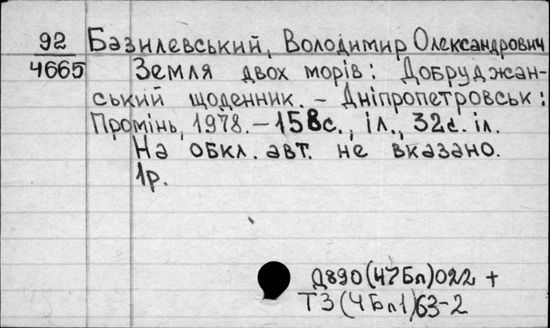 92 Базилевський, Володимир Олександрович
4665 Земля двох морів: Добруджан-
ський щоденник. – Дніпропетровськ:
Промінь, 1978. – 158с., іл., 32с. іл.
На обкл. авт. не вказано.
1р.
Д890(47Бл)022 +
Т3(4Бл1)63-2